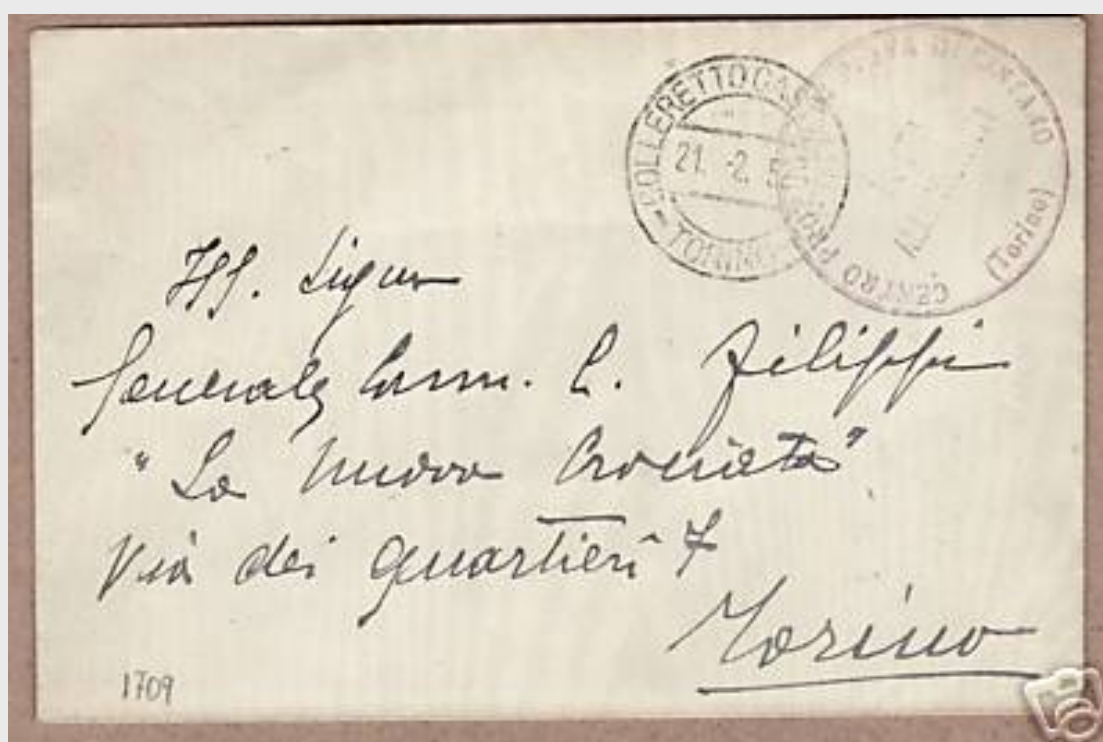 COLLERETTO CAS
21. -2. 5
TORINO
CENTRO PRO
(Torino)
Ill. Signor
Generale Comm. C. Filippi
"La nuova Crociata"
Via dei quartieri 7
Torino
1709